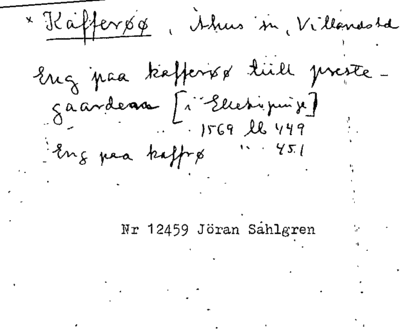 × Kafferøø, Åhus sn, Villands hd
Eng paa kafferøø till preste-
gaarden [i Elleköpinge]
1569 lb 449
Eng paa kaffrø " 451
Nr 12459 Jöran Sahlgren